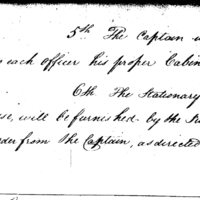 5th The Captain
each officer his proper Cabin
6th The Stationary
will be furnished by the
from the Captain, as directed